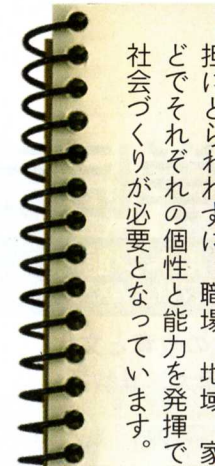 担にとらわれずに、職場、地域、家
どでそれぞれの個性と能力を発揮で
社会づくりが必要となっています。